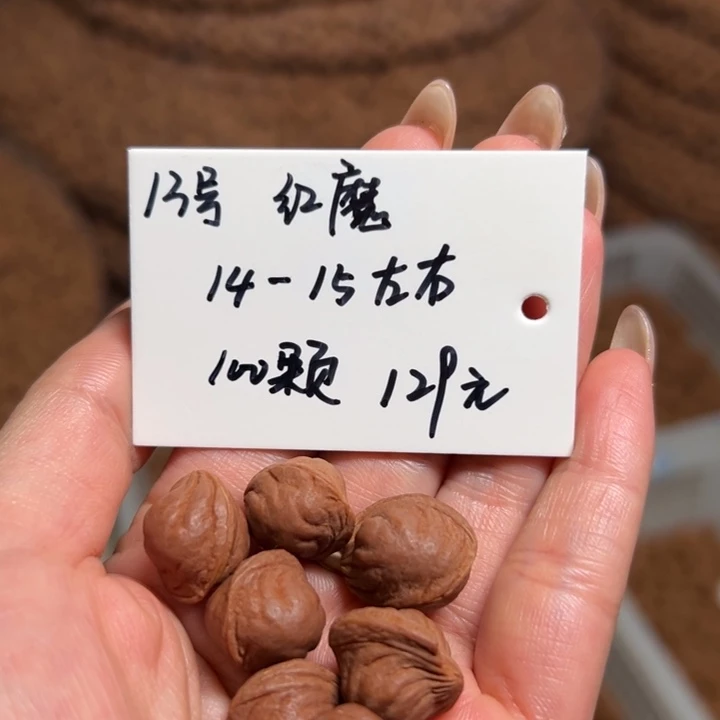 13号 红魔
14-15左右
100颗 129元